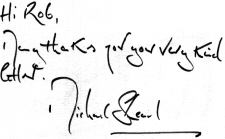 Hi Rob,
Many thanks for your very kind
letter.
Michael